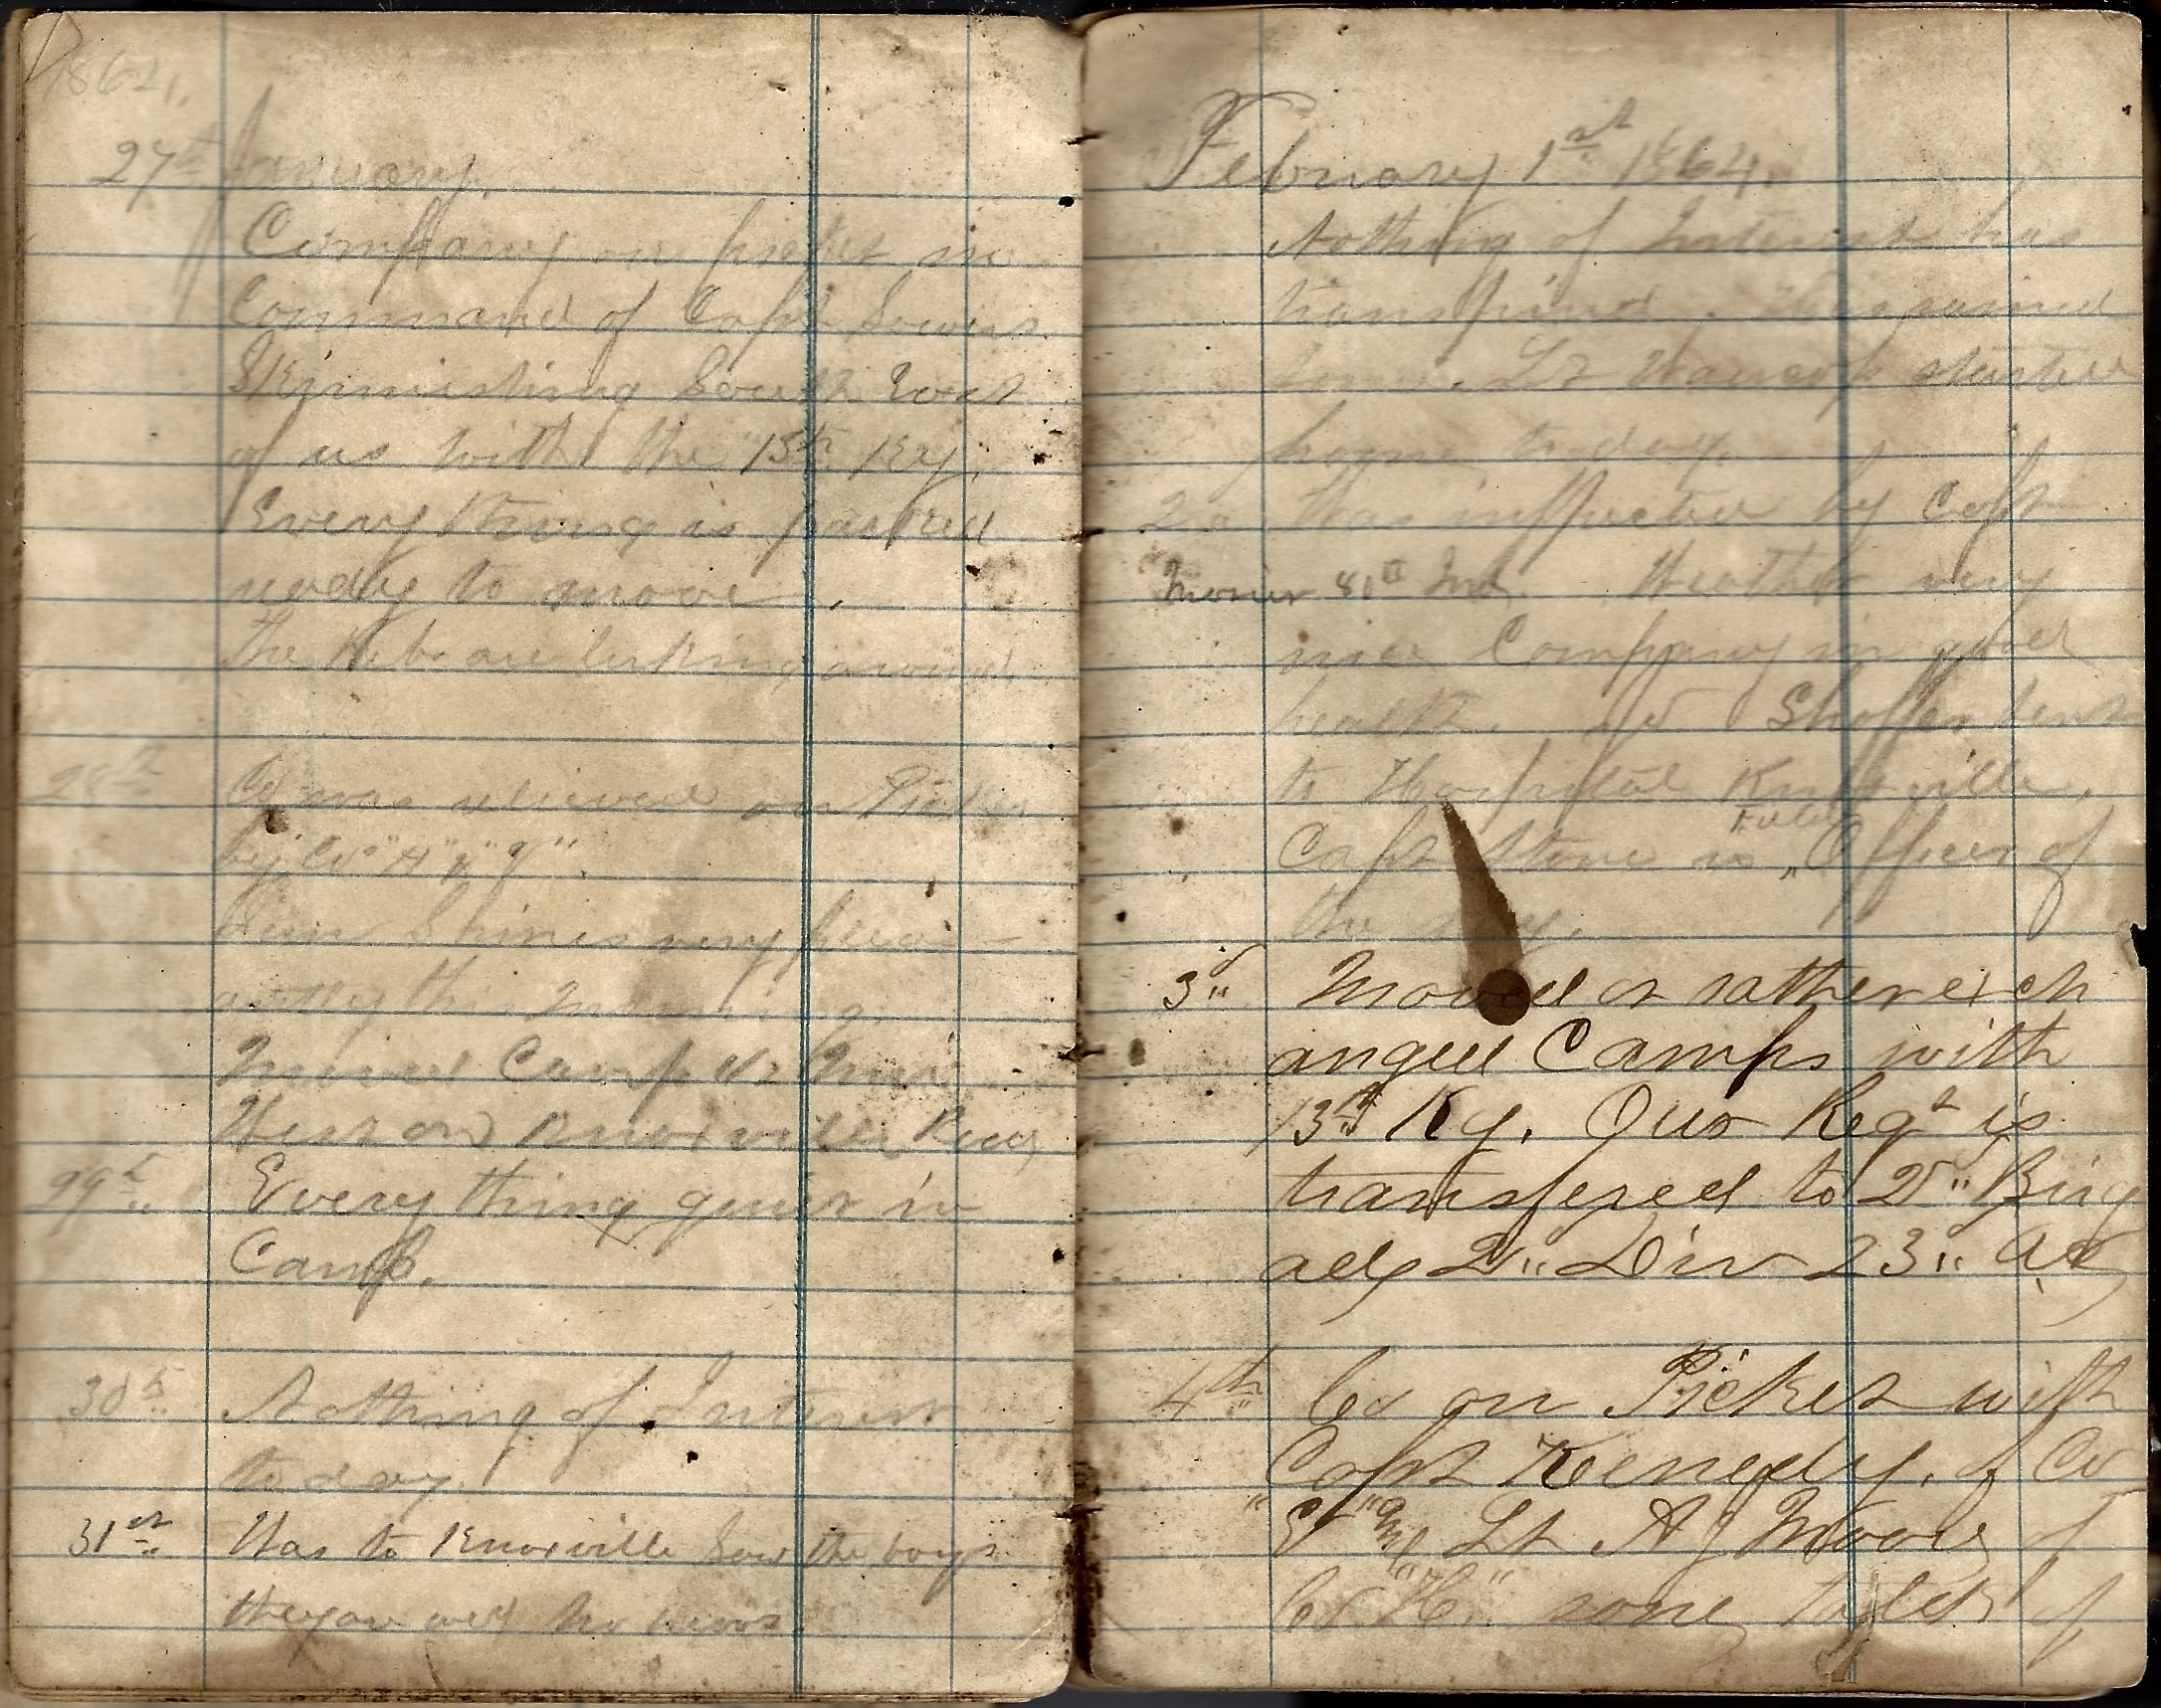 1864.
27th January.
Company on picket in
Command of Capt Sowers
Skirmishing South East
of us with the 15th Ky.
Every thing is packed
ready to move.
the Rebs are lurking around
28th Co was relieved on Picket
by Co "H" &
Sun Shines very pleas
antly this morning.
Moved Camp
West on Knoxville Road
29th Every thing quiet in
Camp.
30th Nothing of Interest
to day.
31st Was to Knoxville Saw the boys
they are well no news
February 1st 1864.
Nothing of Interest has
transpired. Has rained
some. Lt started
home to day.
2d Was inspected by Capt
80th Ind. Weather very
nice Company in good
health. Shoffer sent
to Hospital Knoxville.
Capt Stone is Officer of
the day.
3d Moved or rather exch
anged Camps with
13th Ky. Our Regt is
transfered to 2d Brig
ady 2d Div 23d A.C
4th Co on Picket with
Capt Kenedy. of Co
"E" & Lt A J Moore of
Co "H."